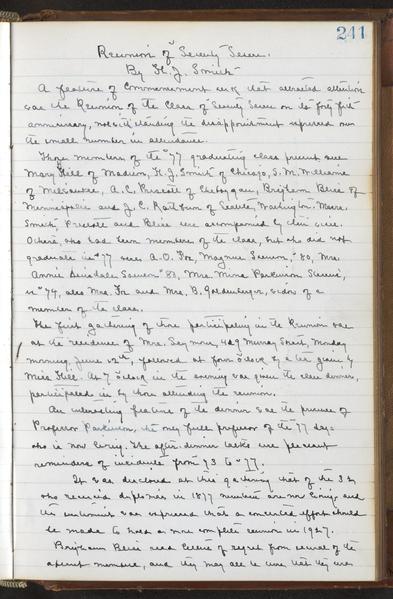 241
Reunion of Seventy Seven.
By H. J. Smith
A feature of Commencement week that attracted attention
was the Reunion of the Class of Seventy Seven on its forty fifth
anniversary, notwithstanding the disappointment expressed over
the small number in attendance.
Those members of the "77 graduating class present were
Mary Hill of Madison, H. J. Smith of Chicago, S. M. Williams
of Milwaukee, A. C. Prescott of Sheboygan, Brigham Bliss of
Minneapolis and J. C. Rathbun of Seattle, Washington. Messrs.
Smith, Prescott and Bliss were accompanied by their wives.
Others who had been members of the class, but who did not
graduate in "77 were A. O. Fox, Magnus Swenson, "80, Mrs.
Annie Dinsdale Swenson "83, Mrs. Minna Parkinson
"79, also Mrs. Fox and Mrs. B. Goldenberger, widow of a
member of the class.
The first gathering of those participating in the Reunion was
at the residence of Mrs. Seymour, 429 Murray Street, Monday
morning, June followed at four o'clock by a tea given by
Miss Hill. At 7 o'clock in the evening was given the class dinner,
participated in by those attending the reunion.
An interesting feature of the dinner was the presence of
Professor Parkinson, the only full professor of the 77 days
who is now living. The after dinner talks were pleasant
reminders of incidents from 73 to 77.
It was disclosed at this gathering that of the 32
who received diplomas in 1877 nineteen are now living and
the sentiment was expressed that a concerted effort should
be made to have a more complete reunion in 1927.
Brigham Bliss read letters of regret from several of the
absent members, and they may all be sure that they were